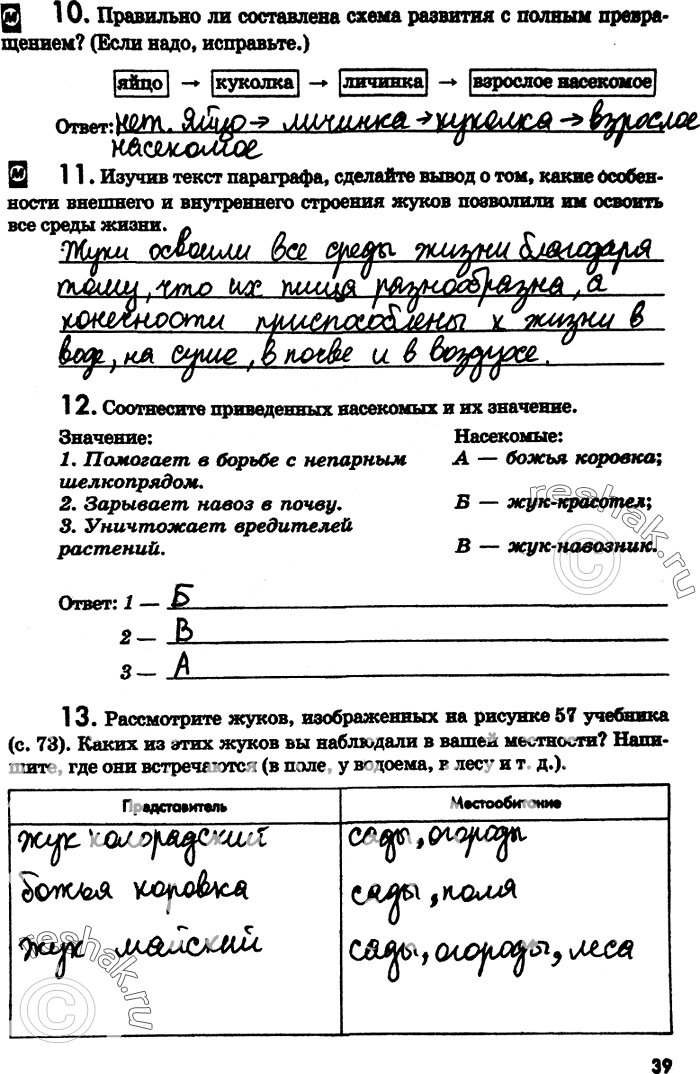 М 10. Правильно ли составлена схема развития с полным превра-
щением? (Если надо, исправьте.)
яйцо → куколка → личинка → взрослое насекомое
Ответ: нет. яйцо → личинка → куколка → взрослое
насекомое
М 11. Изучив текст параграфа, сделайте вывод о том, какие особен-
ности внешнего и внутреннего строения жуков позволили им освоить
все среды жизни.
Жуки освоили все среды жизни благодаря
тому, что их пища разнообразна, а
конечности приспособлены к жизни в
воде, на суше, в почве и в воздухе.
12. Соотнесите приведенных насекомых и их значение.
Значение: Насекомые:
1. Помогает в борьбе с непарным А — божья коровка;
шелкопрядом.
2. Зарывает навоз в почву. Б — жук-красотел;
3. Уничтожает вредителей
растений. В — жук-навозник.
reshak.ru
Ответ: 1 — Б
2 — В
3 — А
13. Рассмотрите жуков, изображенных на рисунке 57 учебника
(с. 73). Каких из этих жуков вы наблюдали в вашей местности? Напи-
шите, где они встречаются (в поле, у водоема, в лесу и т. д.).
Представитель Местообитание
жук колорадский сады, огороды
божья коровка сады, поля
жук майский сады, огороды, леса
reshak.ru
39